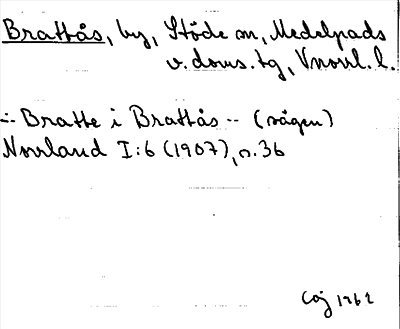 Brattås, by, Stöde sn, Medelpads
v. doms. tg, Vnorrl. l.
-:- Bratte i Brattås -:- (vågen)
Norrland I:6 (1907), s. 36
1962